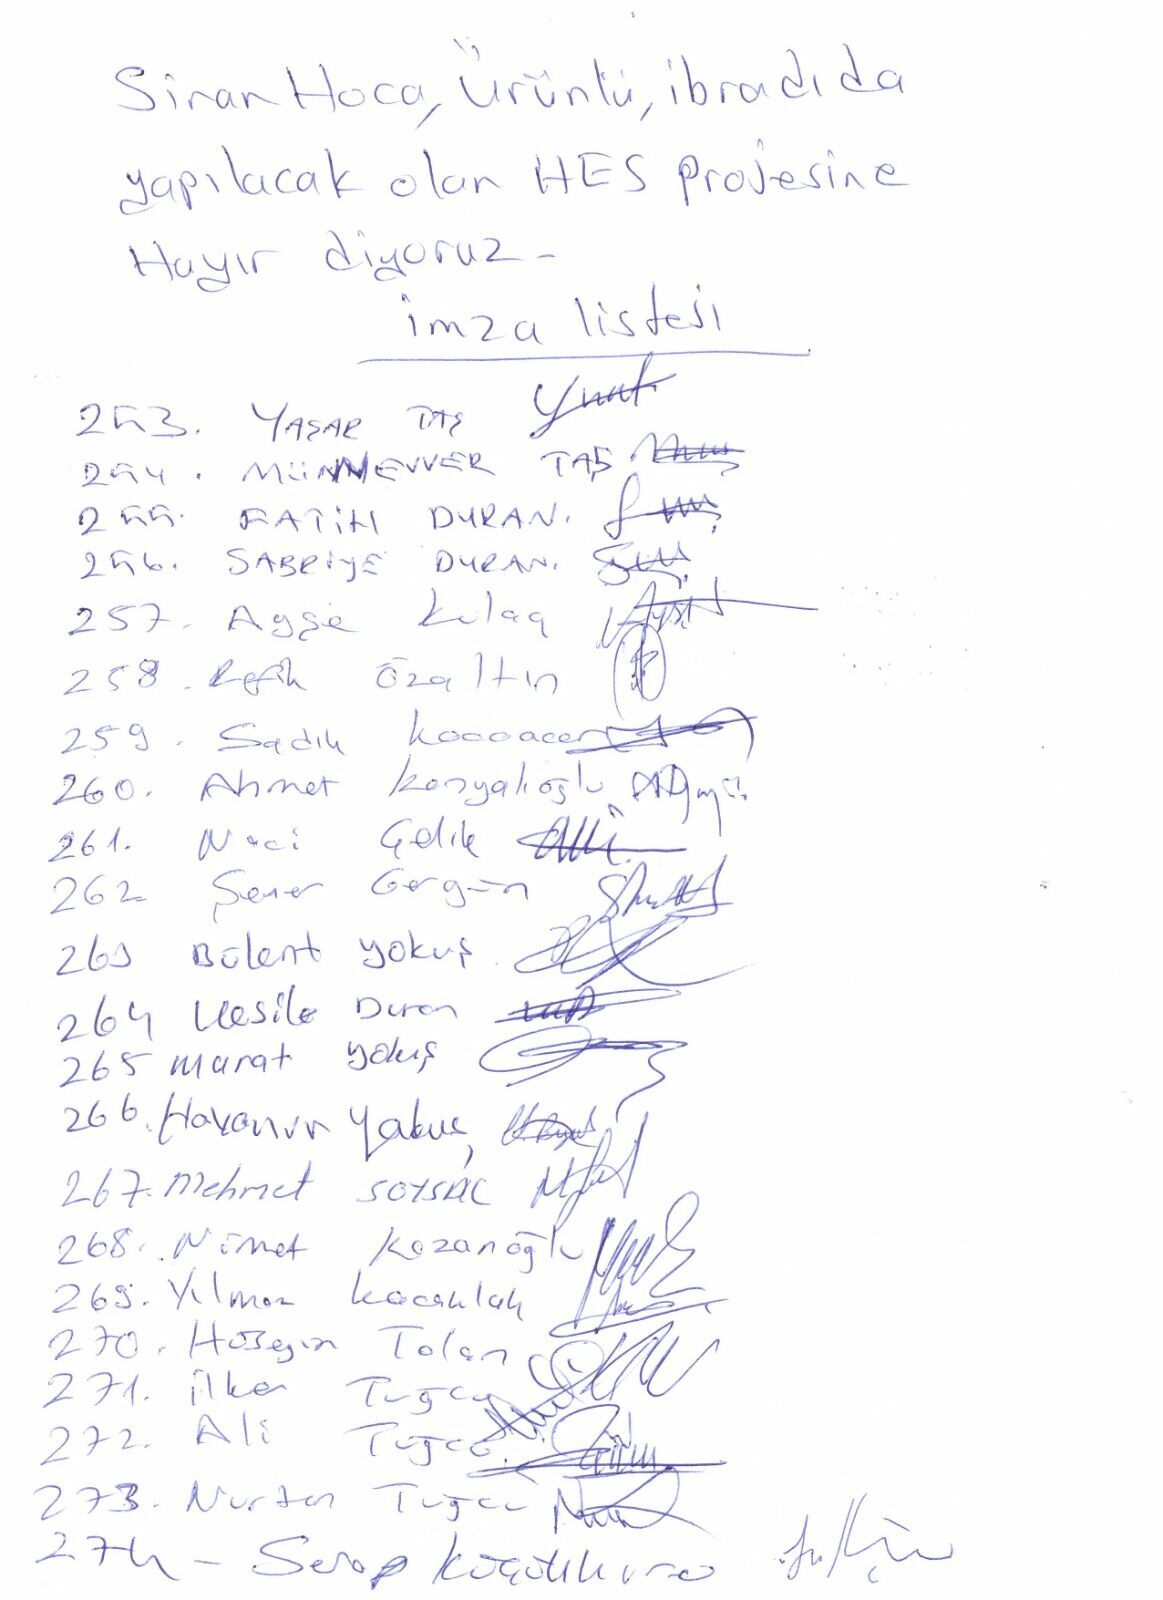 Sinan Hoca, Ürünlü, ibradıda
yapılacak olan HES projesine
Hayır diyoruz-
imza listesi
253. YAŞAR TAŞ
254. MÜNNEVVER TAŞ
255. FATİH DURAN.
256. SABRİYE DURAN.
257. Ayşe Kılaç
258. Refik Özaltın
259. Sadık
260. Ahmet Konyalıoğlu
261. Naci Çelik
262 Şener Gergün
263 Bülent yokuş
264 Vesile Duran
265 Murat yokuş
266. Havanur Yakuş
267. Mehmet SOYSAL
268. Nimet Kozanoğlu
269. Yılmaz
270. Hüseyin Tolan
271. ilker Tuğcu
272. Ali Tuğcu
273. Nurten Tuğcu
274 - Serap